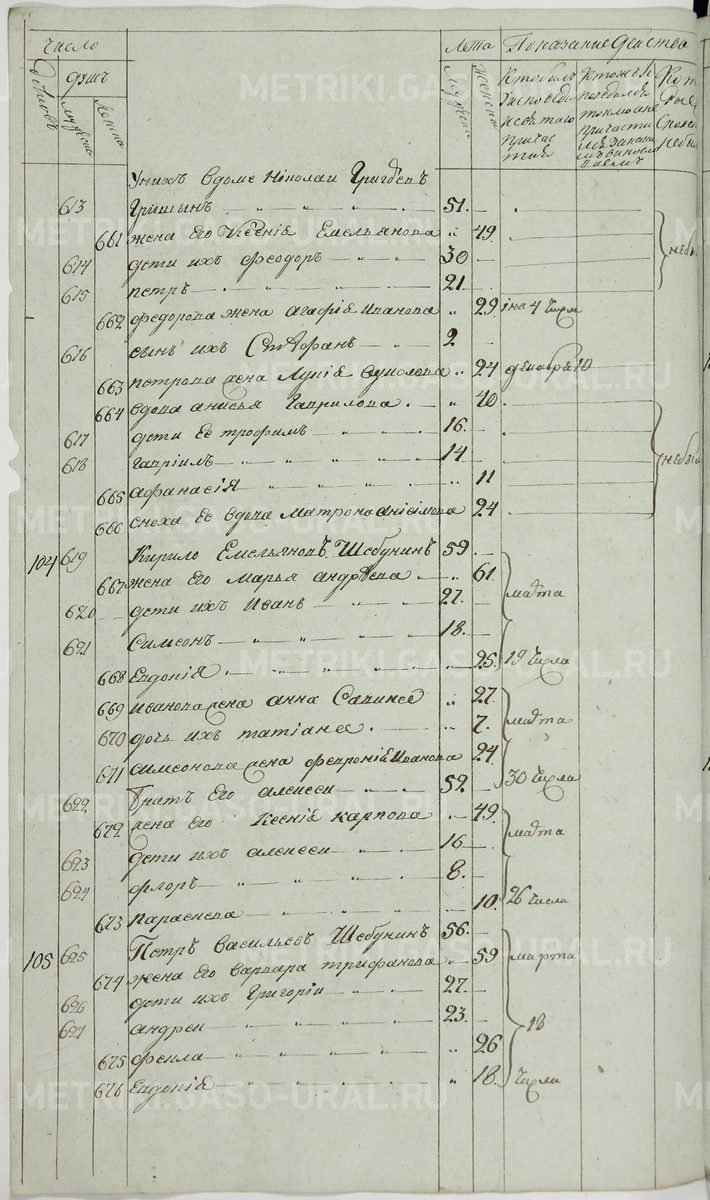 Число Лета Показание действа
дворовъ душъ мужска женска мужска женска
Кто былъ у исповеди и святаго причастия
Кто же исповедался токмо а не причастился и за каким винословием
Кои
у нихъ в доме Николаи Григорьевъ
613 Гришынъ 51
661 жена его Ксения Емельянова 49
614 дети ихъ Феодоръ 30
615 петръ 21 небы
662 федорова жена агафия Иванова 29 4 числа
616 сынъ ихъ Стефанъ 2
663 петрова жена Лукия 24 декабря 10
664 вдова анисья Гаврилова 40
617 дети ее трофимъ 16
618 гавриилъ 14 небы
665 афанасия 11
666 сноха ее вдова матрона анисимова 24
104 619 Кирило Емельяновъ Шебунинъ 59
667 жена его Марья андреева 61
620 дети ихъ Иванъ 27 марта
621 Симеонъ 18
668 Евдокия 25 19 числа
669 иванова жена анна Савина 27
670 дочь ихъ татиана 7 марта
671 симеонова жена феврония Иванова 24
622 Братъ его алексеи 52 30 числа
672 жена его Ксения карпова 49 марта
623 дети ихъ алексеи 16
624 флоръ 8
673 параскева 10 26 числа
105 625 Петръ Васильевъ Шебунинъ 56
674 жена его варвара трифанова 59 марта
626 дети ихъ Григории 27
627 андреи 23 18
675 фекла 26
676 Евдокия 18 числа
METRIKI.GASO-URAL.RU